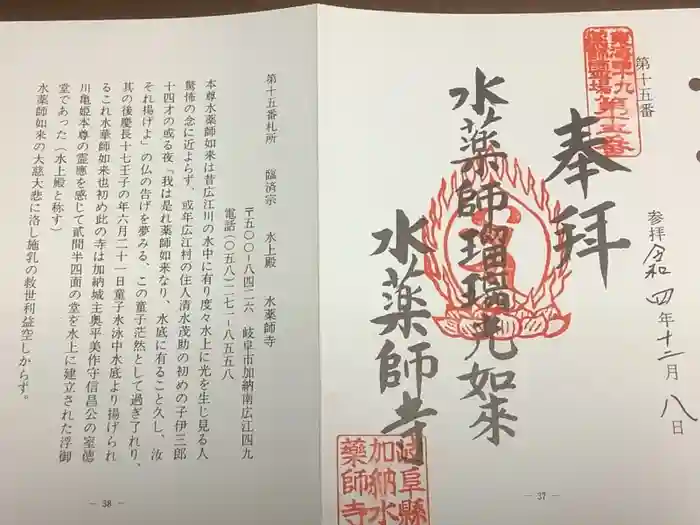 第十五番
東海四十九
薬師霊場
第十五番
奉拝
参拝 令和四年十二月八日
水薬師瑠璃光如来
水薬師寺
岐阜縣
加納水
薬師寺
- 37 -
第十五番札所 臨済宗 水上殿 水薬師寺
〒五〇〇-八四二六 岐阜市加納南広江四九
電話(〇五八)二七一-八五五八
本尊水薬師如来は昔広江川の水中に有り度々水上に光を生じ見る人
驚怖の念に近よらず、或年広江村の住人清水茂助の初めの子伊三郎
十四才の或る夜「我は是れ薬師如来なり、水底に有ること久し、汝
それ揚げよ」の仏の告げを夢みる、この童子茫然として過ぎ了れり、
其の後慶長十七壬子の年六月二十一日童子水泳中水底より揚げられ
るこれ水華師如来也初め此の寺は加納城主奥平美作守信昌公の室徳
川亀姫本尊の霊應を感じて貳間半四面の堂を水上に建立された浮御
堂であった(水上殿と称す)
水薬師如来の大慈大悲に洛し施乳の救世利益空しからず。
- 38 -